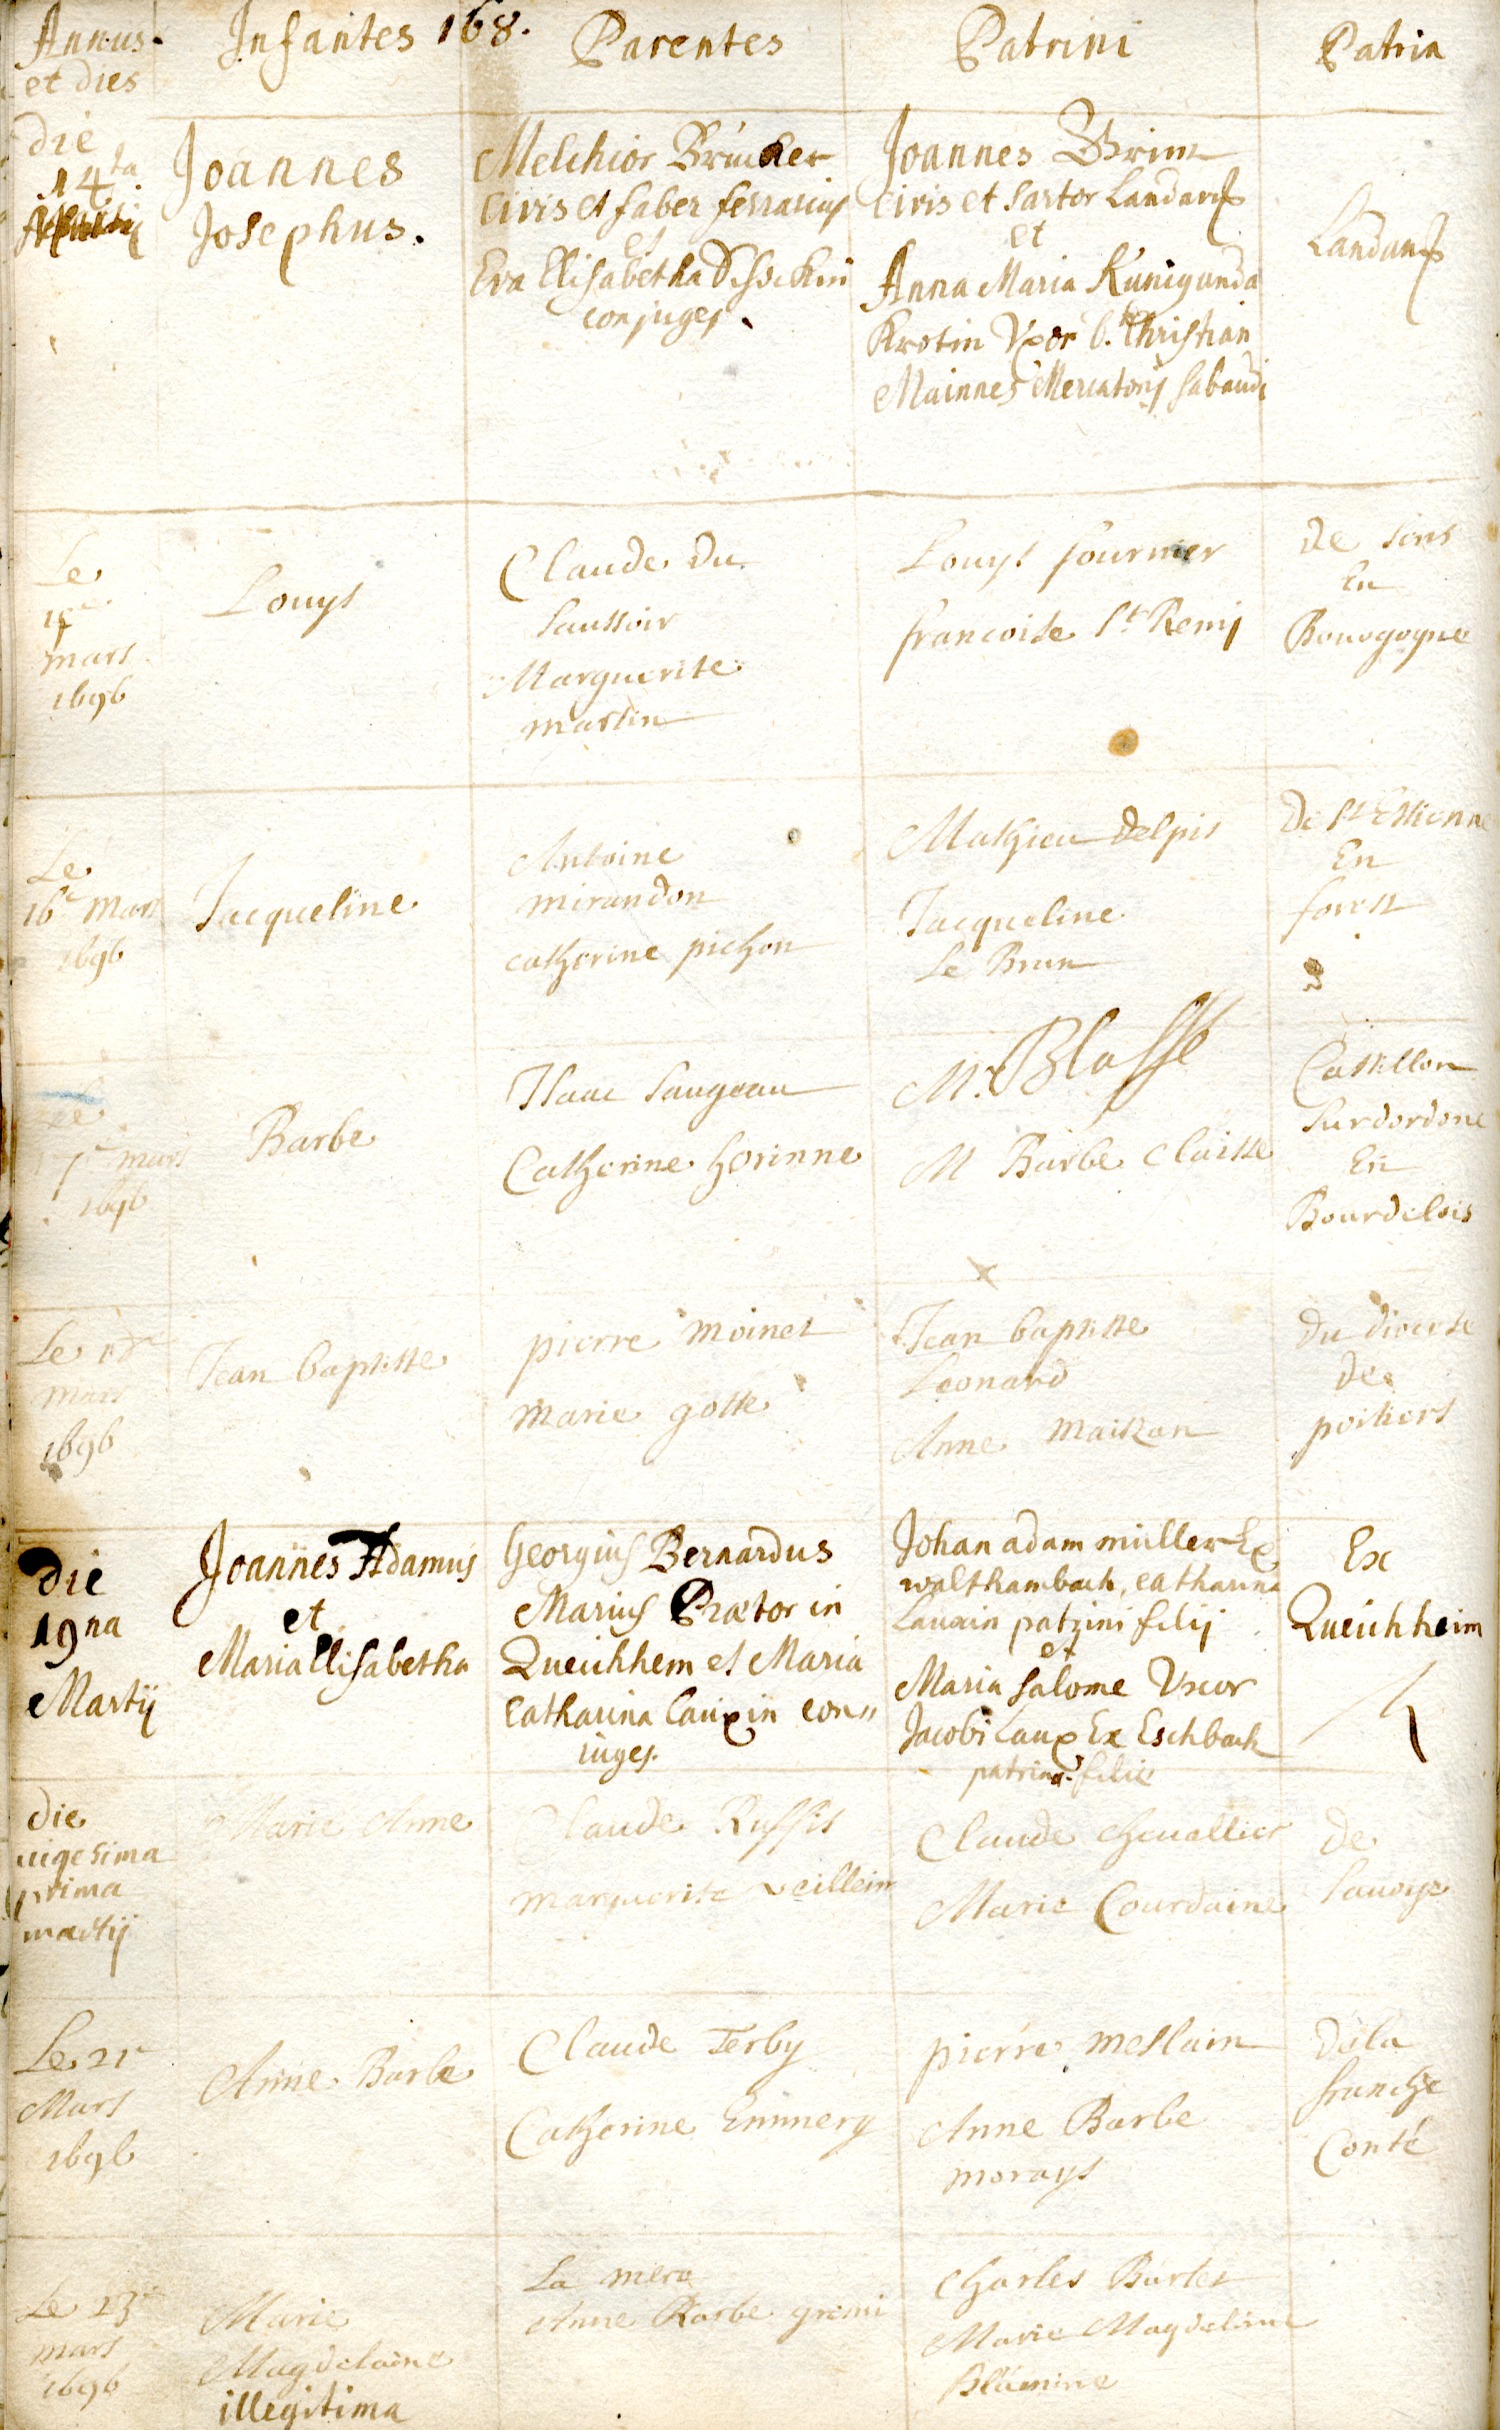 Annus Infantes 168. Parentes Patrini Patria
et dies
die
14ta
Joannes
Josephus.
Melchior Brucker
Civis et faber ferrarius
et
Eva Elisabetha Schickin
conjuges.
Joannes Grim
Civis et Sartor Landaviensis
et
Anna Maria Kunigunda
Krotin Uxor Christian
Mainnes Mercatoris Sabaudi
Landaviensis
Le
15e
mars
1696
Louys
Claude du
Saussoir
Marguerite
martin
Louys fournier
francoise St Remj
de sens
En
Bourgogne
Le
16e Mars
1696
Jacqueline
Antoine
mirandon
catherine pichon
Mathieu delpis
Jacqueline
Le Brun
De St Estienne
En
forest
Le
17e mars
1696
Barbe
Isaac Saugeau
Catherine horinne
Mr. Blasse
M Barbe Claisse
Castillon
Surdordone
En
Bourdelois
Le 18e
mars
1696
Jean baptiste
pierre moinet
marie gotte
Jean baptiste
Leonard
Anne maitzan
Du diocese
de
poitiers
die
19na
Martij
Joannes Adamus
et
Maria Elisabetha
Georgius Bernardus
Marius Prætor in
Queichhem et Maria
Catharina Lauxin con"
iuges.
Johan adam müller Ex
walthambach, catharina
Lauxin patrini filij
et
Maria Salome Uxor
Jacobi Laux Ex Eschbach
patrina filie
Ex
Queichheim
die
uigesima
prima
martij
Marie Anne
Claude Ruffis
marguerite veillein
Claude chevallier
Marie Courdaine
De
Savoye
Le 21e
Mars
1696
Anne Barbe
Claude Terby
Catherine Emmery
pierre meslain
Anne Barbe
morays
Dela
franche
Conté
Le 23e
mars
1696
Marie
Magdelaine
illegitima
La mere
Anne Barbe gremi
Charles Barlet
Marie Magdelaine
Blümine